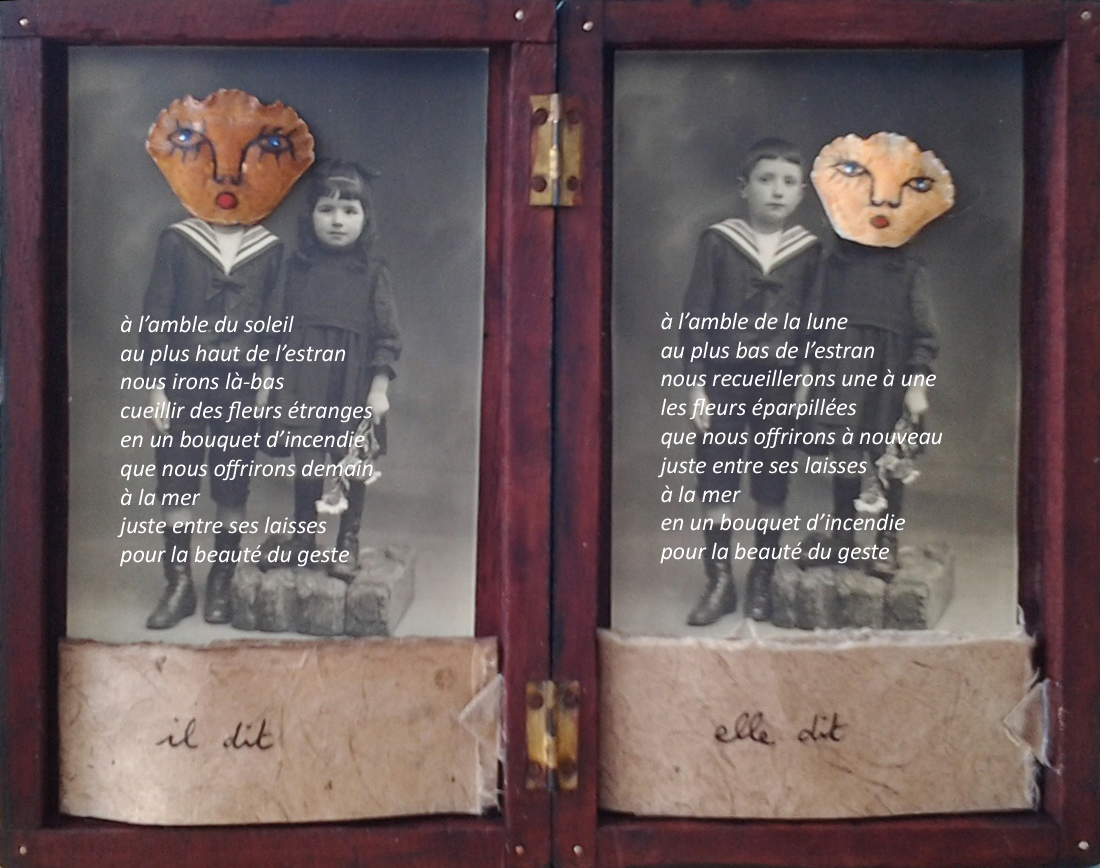 à l’amble du soleil
au plus haut de l’estran
nous irons là-bas
cueillir des fleurs étranges
en un bouquet d’incendie
que nous offrirons demain
à la mer
juste entre ses laisses
pour la beauté du geste
il dit
à l’amble de la lune
au plus bas de l’estran
nous recueillerons une à une
les fleurs éparpillées
que nous offrirons à nouveau
juste entre ses laisses
à la mer
en un bouquet d’incendie
pour la beauté du geste
elle dit